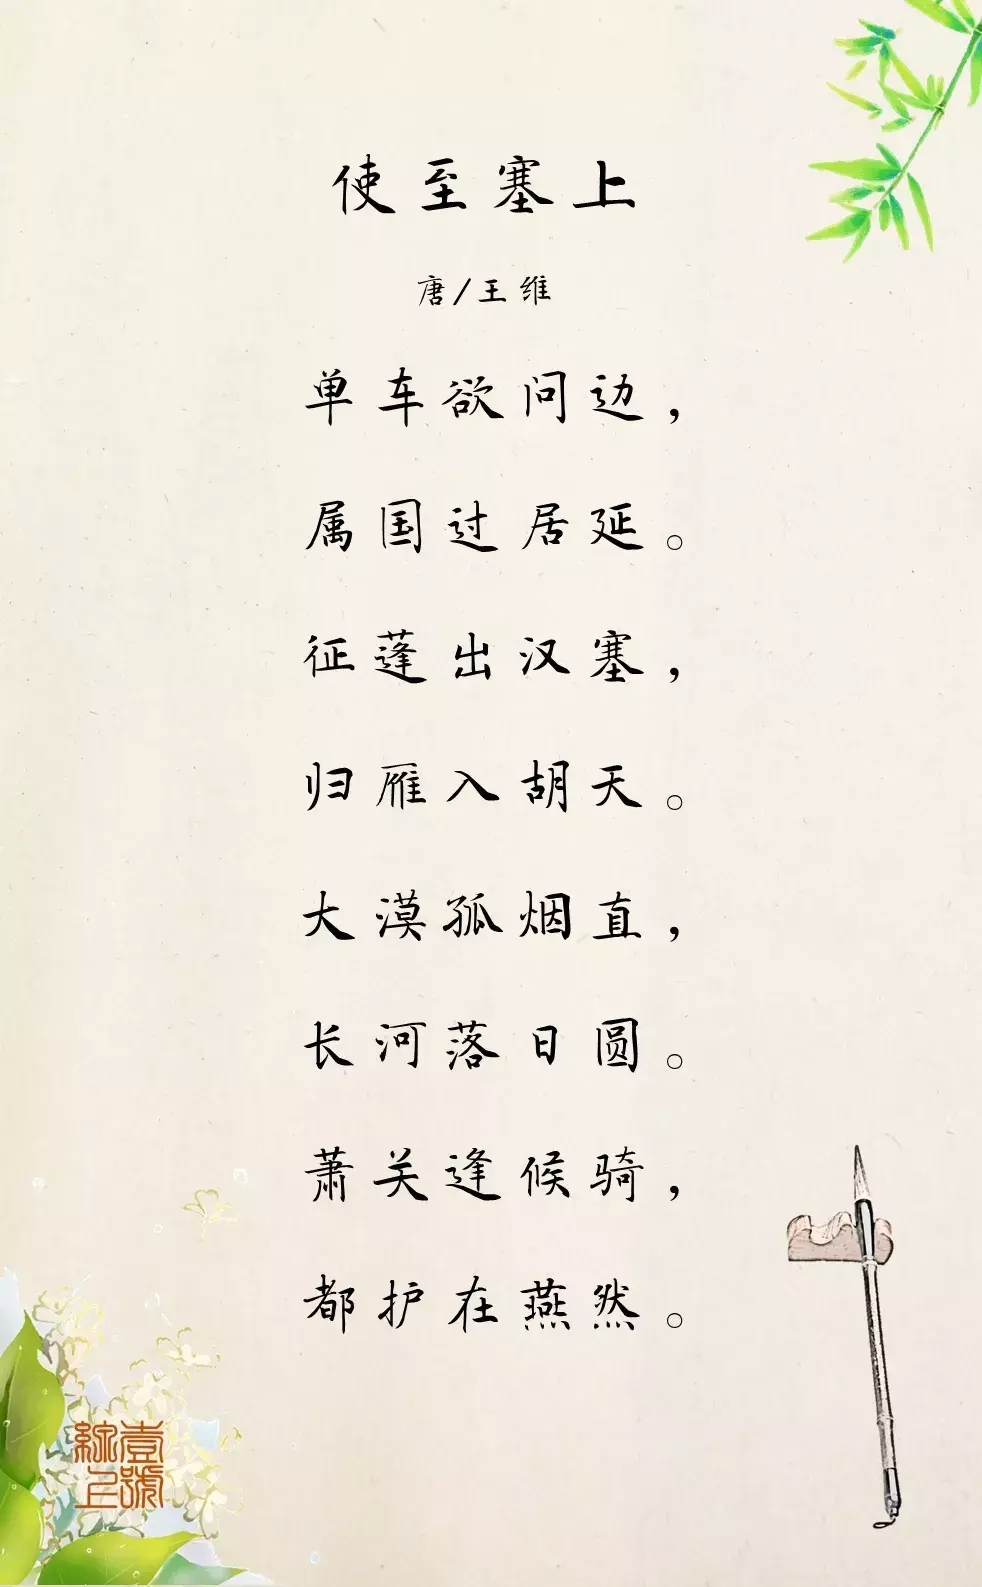 使至塞上
唐/王维
单车欲问边，
属国过居延。
征蓬出汉塞，
归雁入胡天。
大漠孤烟直，
长河落日圆。
萧关逢候骑，
都护在燕然。